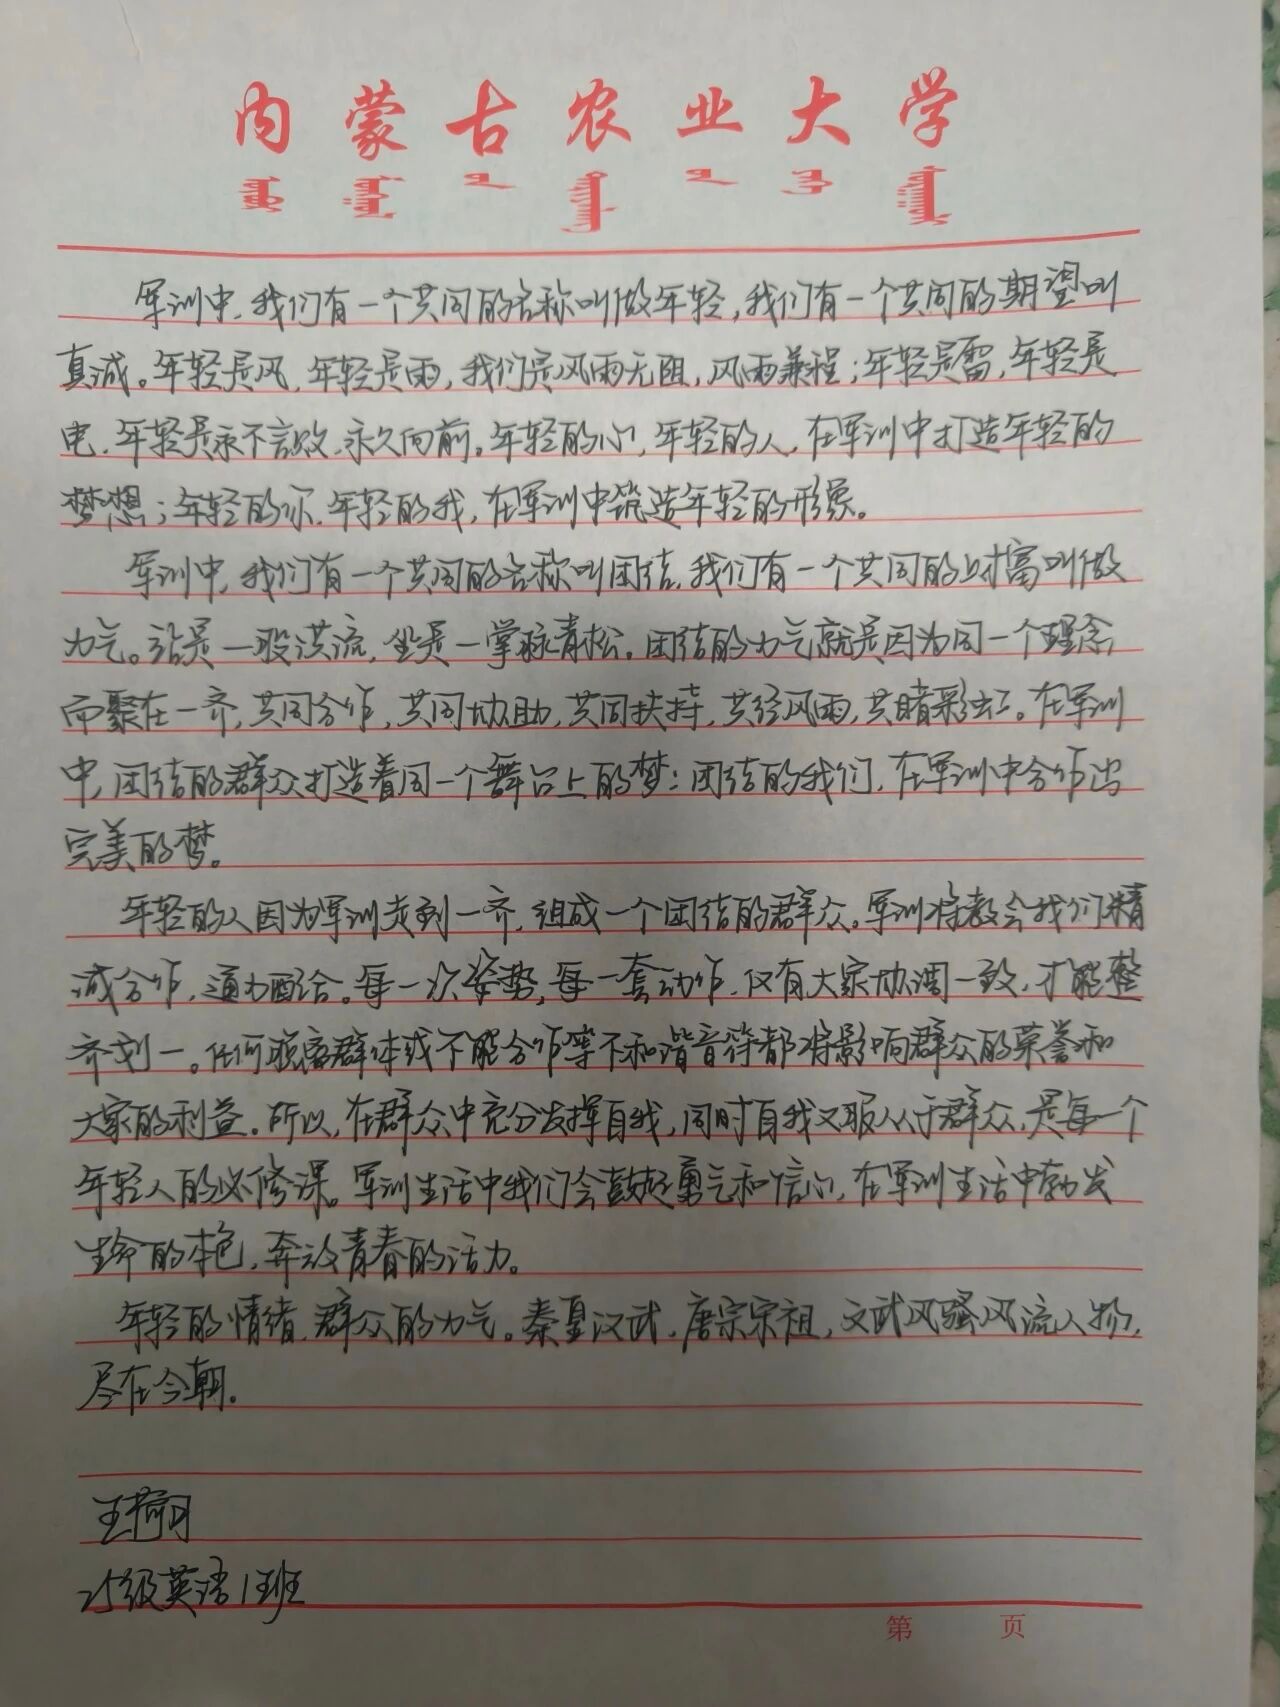 内蒙古农业大学
军训中,我们有一个共同的名称叫做年轻,我们有一个共同的期望叫
真诚。年轻是风,年轻是雨,我们是风雨无阻,风雨兼程;年轻是雷,年轻是
电,年轻是永不言败,永久向前。年轻的心,年轻的人,在军训中打造年轻的
梦想;年轻的你,年轻的我,在军训中筑造年轻的形象。
军训中,我们有一个共同的名称叫团结,我们有一个共同的财富叫做
力气。站是一股洪流,坐是一掌脉青松。团结的力气就是因为同一个理念
而聚在一齐,共同合作,共同协助,共同扶持,共经风雨,共睹彩虹。在军训
中,团结的群众打造着同一个舞台上的梦;团结的我们,在军训中合作出
完美的梦。
年轻的人因为军训走到一齐,组成一个团结的群众。军训将教会我们精
诚合作,通力配合。每一次姿势,每一套动作,仅有大家协调一致,才能整
齐划一。任何脱离群体或不能合作等不和谐音符都将影响群众的荣誉和
大家的利益。所以,在群众中充分发挥自我,同时自我又服从于群众,是每一个
年轻人的必修课。军训生活中我们会鼓起勇气和信心,在军训生活中勃发
生命的本色,奔放青春的活力。
年轻的情绪,群众的力气。秦皇汉武,唐宗宋祖,文武风骚风流人物,
尽在今朝。
王荷月
25级英语1班
第 页